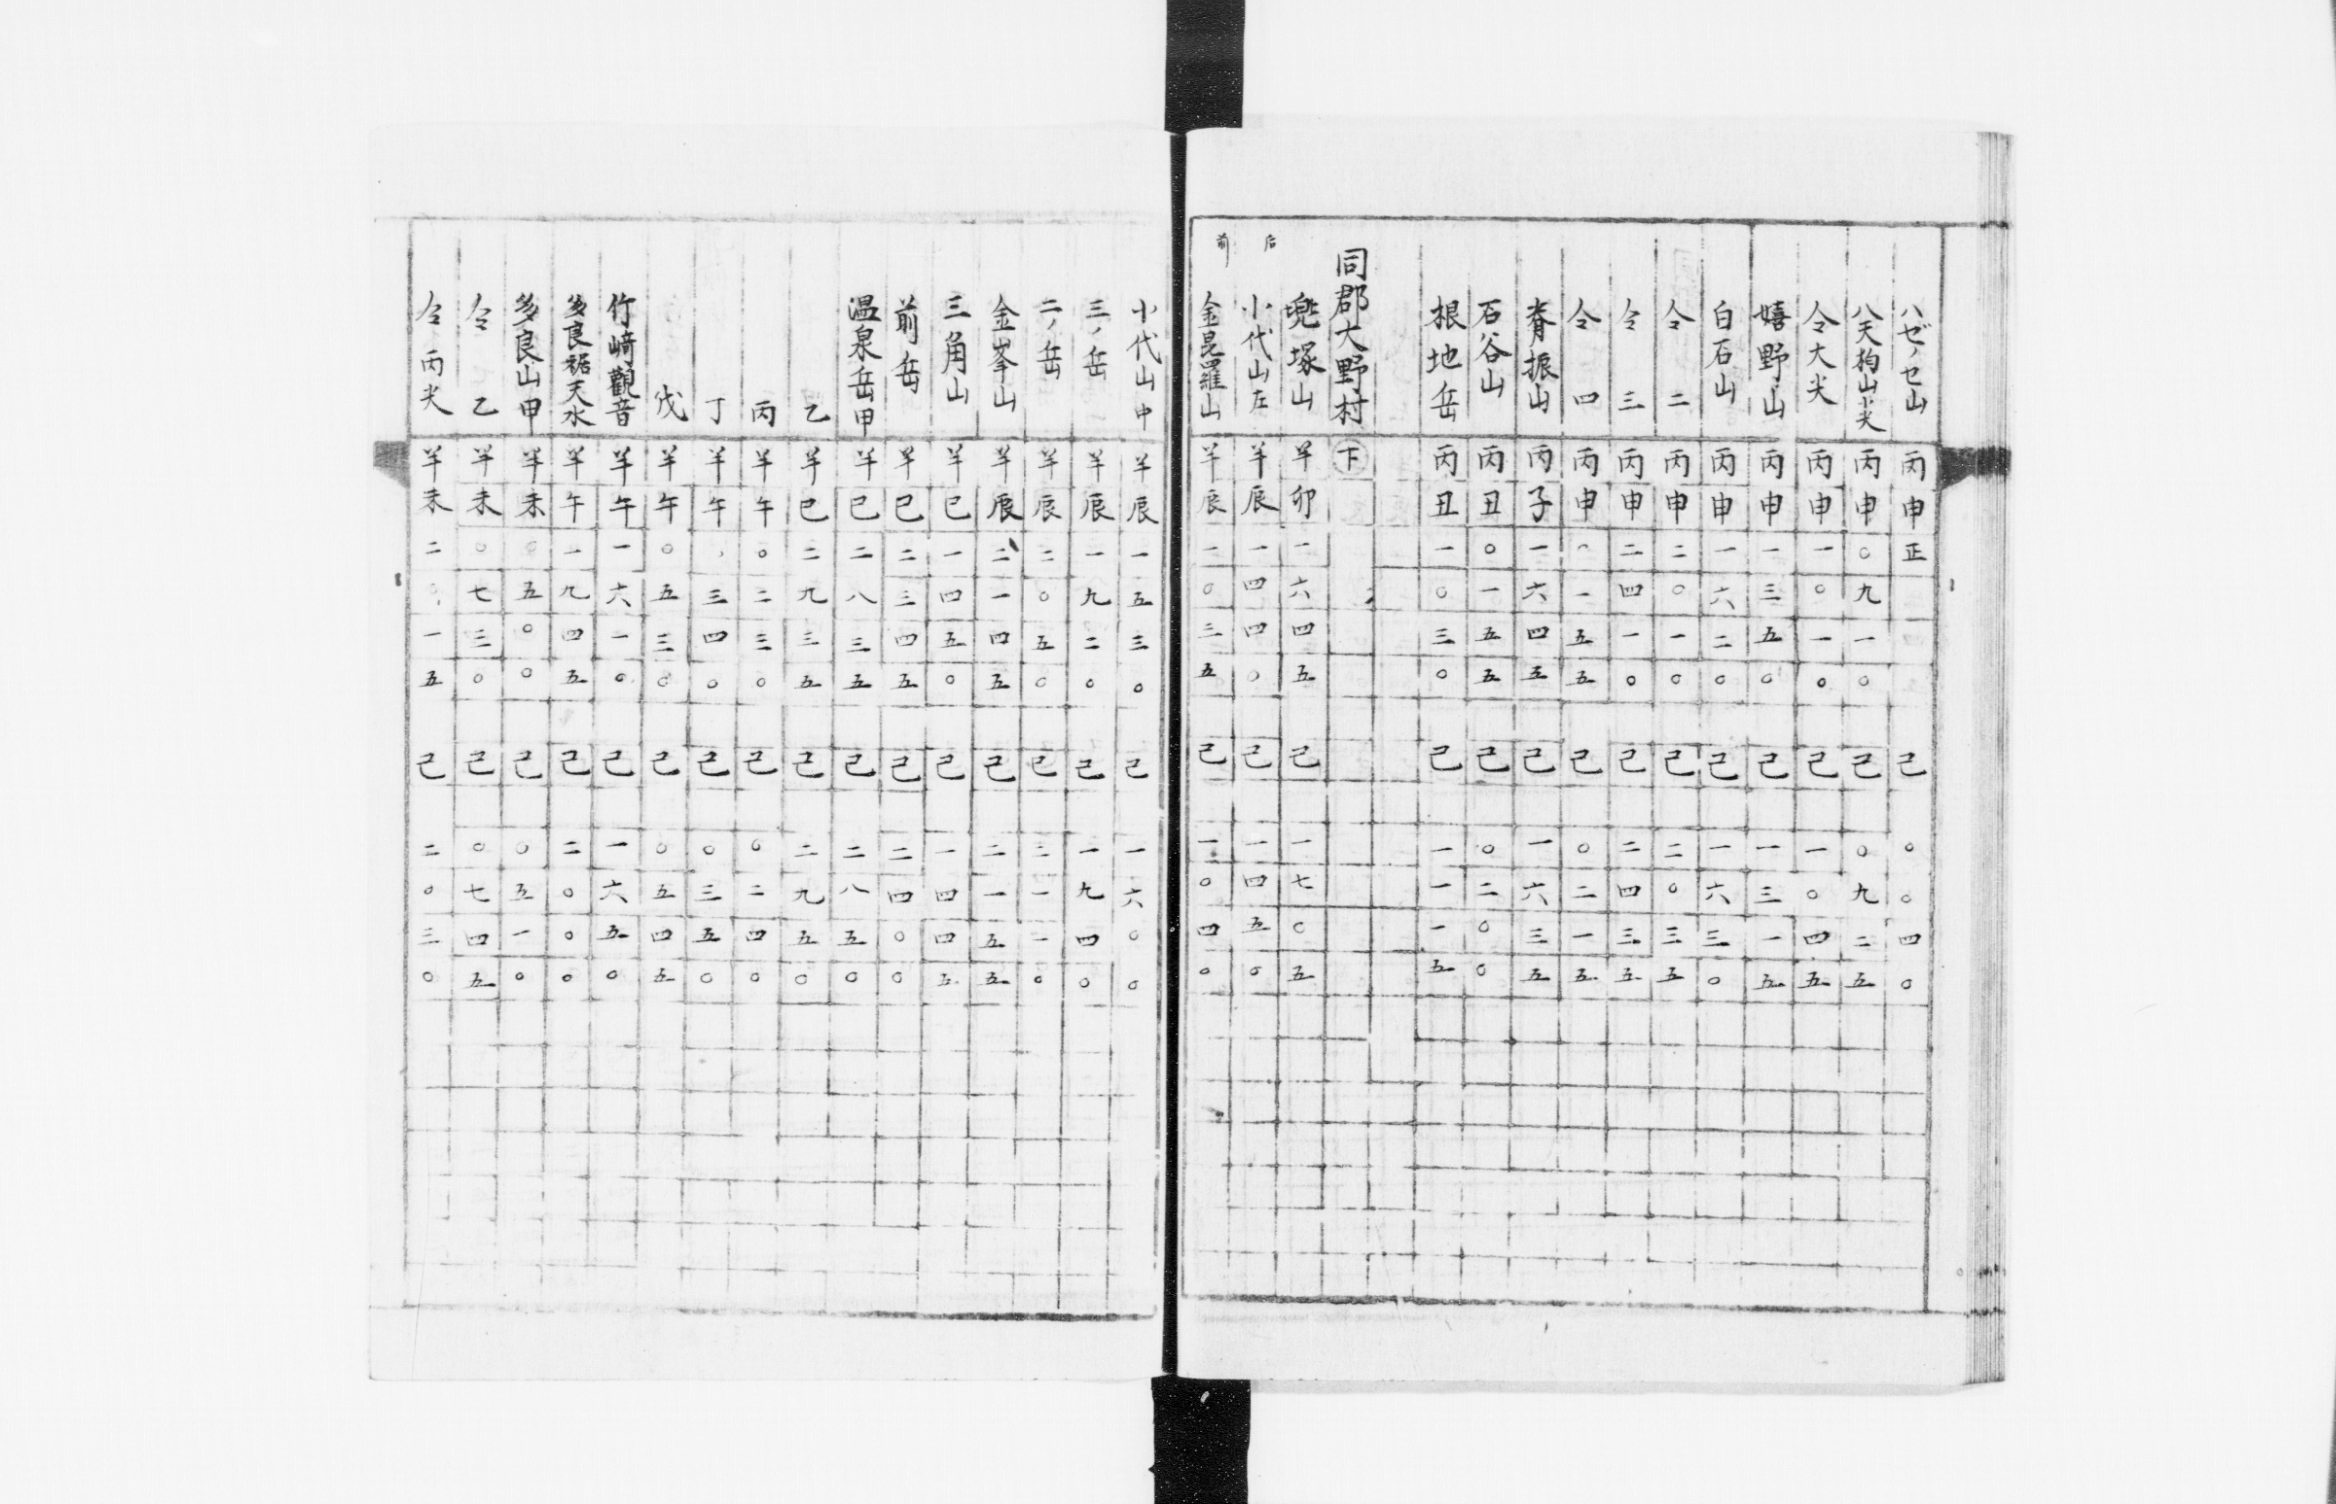 ハゼノセ山 丙申正 己 〇〇四〇
八天枸山小尖 丙申〇九一〇 己 〇九二五
仝大尖 丙申一〇一〇 己 一〇四五
嬉野山 丙申一三五〇 己 一三一五
白石山 丙申一六二〇 己 一六三〇
仝二 丙申二〇一〇 己 二〇三五
仝三 丙申二四一〇 己 二四三五
仝四 丙申〇一五五 己 〇二一五
脊振山 丙子一六四五 己 一六三五
石谷山 丙丑〇一五五 己 〇二〇〇
根地岳 丙丑一〇三〇 己 一一一五
同郡大野村 下
兠塚山 羊卯一六四五 己 一七〇五
后 小代山左 羊辰一四四〇 己 一四五〇
前 金昆羅山 羊辰一〇三五 己 一〇四〇
小代山中 羊辰一五三〇 己 一六〇〇
三ノ岳 羊辰一九二〇 己 一九四〇
二ノ岳 羊辰二〇五〇 己 二一一〇
金峯山 羊辰二一四五 己 二一五五
三角山 羊巳一四五〇 己 一四四五
前岳 羊巳二三四五 己 二四〇〇
温泉岳甲 羊巳二八三五 己 二八五〇
乙 羊巳二九三五 己 二九五〇
丙 羊午〇二三〇 己 〇二四〇
丁 羊午〇三四〇 己 〇三五〇
戊 羊午〇五三〇 己 〇五四五
竹﨑觀音 羊午一六一〇 己 一六五〇
多良裾天水 羊午一九四五 己 二〇〇〇
多良山甲 羊未〇五〇〇 己 〇五一〇
仝乙 羊未〇七三〇 己 〇七四五
仝丙尖 羊未二〇一五 己 二〇三〇